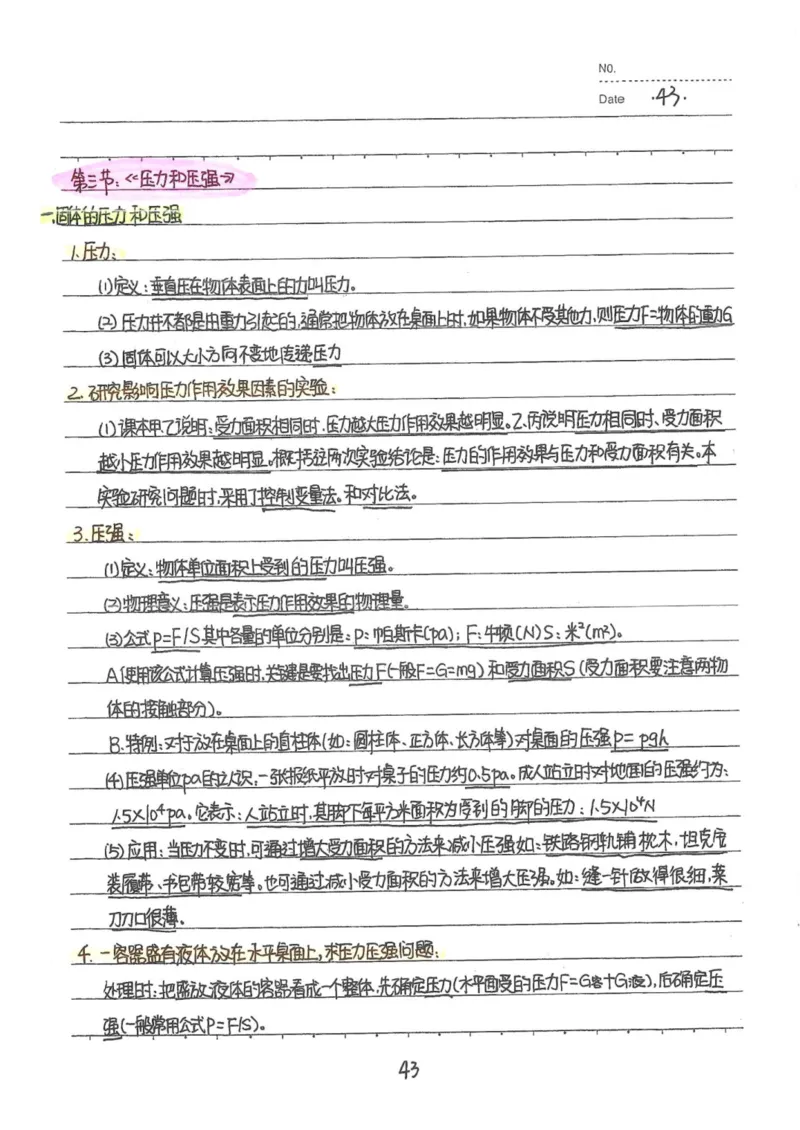 NO.
Date ·43·
第三节:<<压力和压强>>
一、固体的压力和压强
1.压力:
(1)定义:垂直压在物体表面上的力叫压力。
(2)压力并不都是由重力引起的,通常把物体放在桌面上时,如果物体不受其他力,则压力F=物体的重力G
(3)固体可以大小方向不变地传递压力
2.研究影响压力作用效果因素的实验:
(1)课本甲乙说明:受力面积相同时,压力越大压力作用效果越明显。乙、丙说明压力相同时、受力面积
越小压力作用效果越明显。概括这两次实验结论是:压力的作用效果与压力和受力面积有关。本
实验研究问题时,采用了控制变量法。和对比法。
3.压强:
(1)定义:物体单位面积上受到的压力叫压强。
(2)物理意义:压强是表示压力作用效果的物理量。
(3)公式p=F/S其中各量的单位分别是:p:帕斯卡(pa);F:牛顿(N)S:米²(m²)。
A使用该公式计算压强时,关键是要找出压力F(一般F=G=mg)和受力面积S(受力面积要注意两物
体的接触部分)。
B.特例:对于放在桌面上的直柱体(如:圆柱体、正方体、长方体等)对桌面的压强p=ρgh
(4)压强单位pa的认识:一张报纸平放时对桌子的压力约0.5pa。成人站立时对地面的压强约为:
1.5×10⁴pa。它表示:人站立时,其脚下每平方米面积为受到的脚的压力:1.5×10⁴N
(5)应用:当压力不变时,可通过增大受力面积的方法来减小压强如:铁路钢轨铺枕木,坦克安
装履带、书包带较宽等。也可通过减小受力面积的方法来增大压强。如:缝一针做得很细,菜
刀刀口很薄。
4.一容器盛有液体放在水平桌面上,求压力压强问题:
处理时:把盛放液体的容器看成一个整体,先确定压力(水平面受的压力F=G容+G液),后确定压
强(一般常用公式P=F/S)。
43